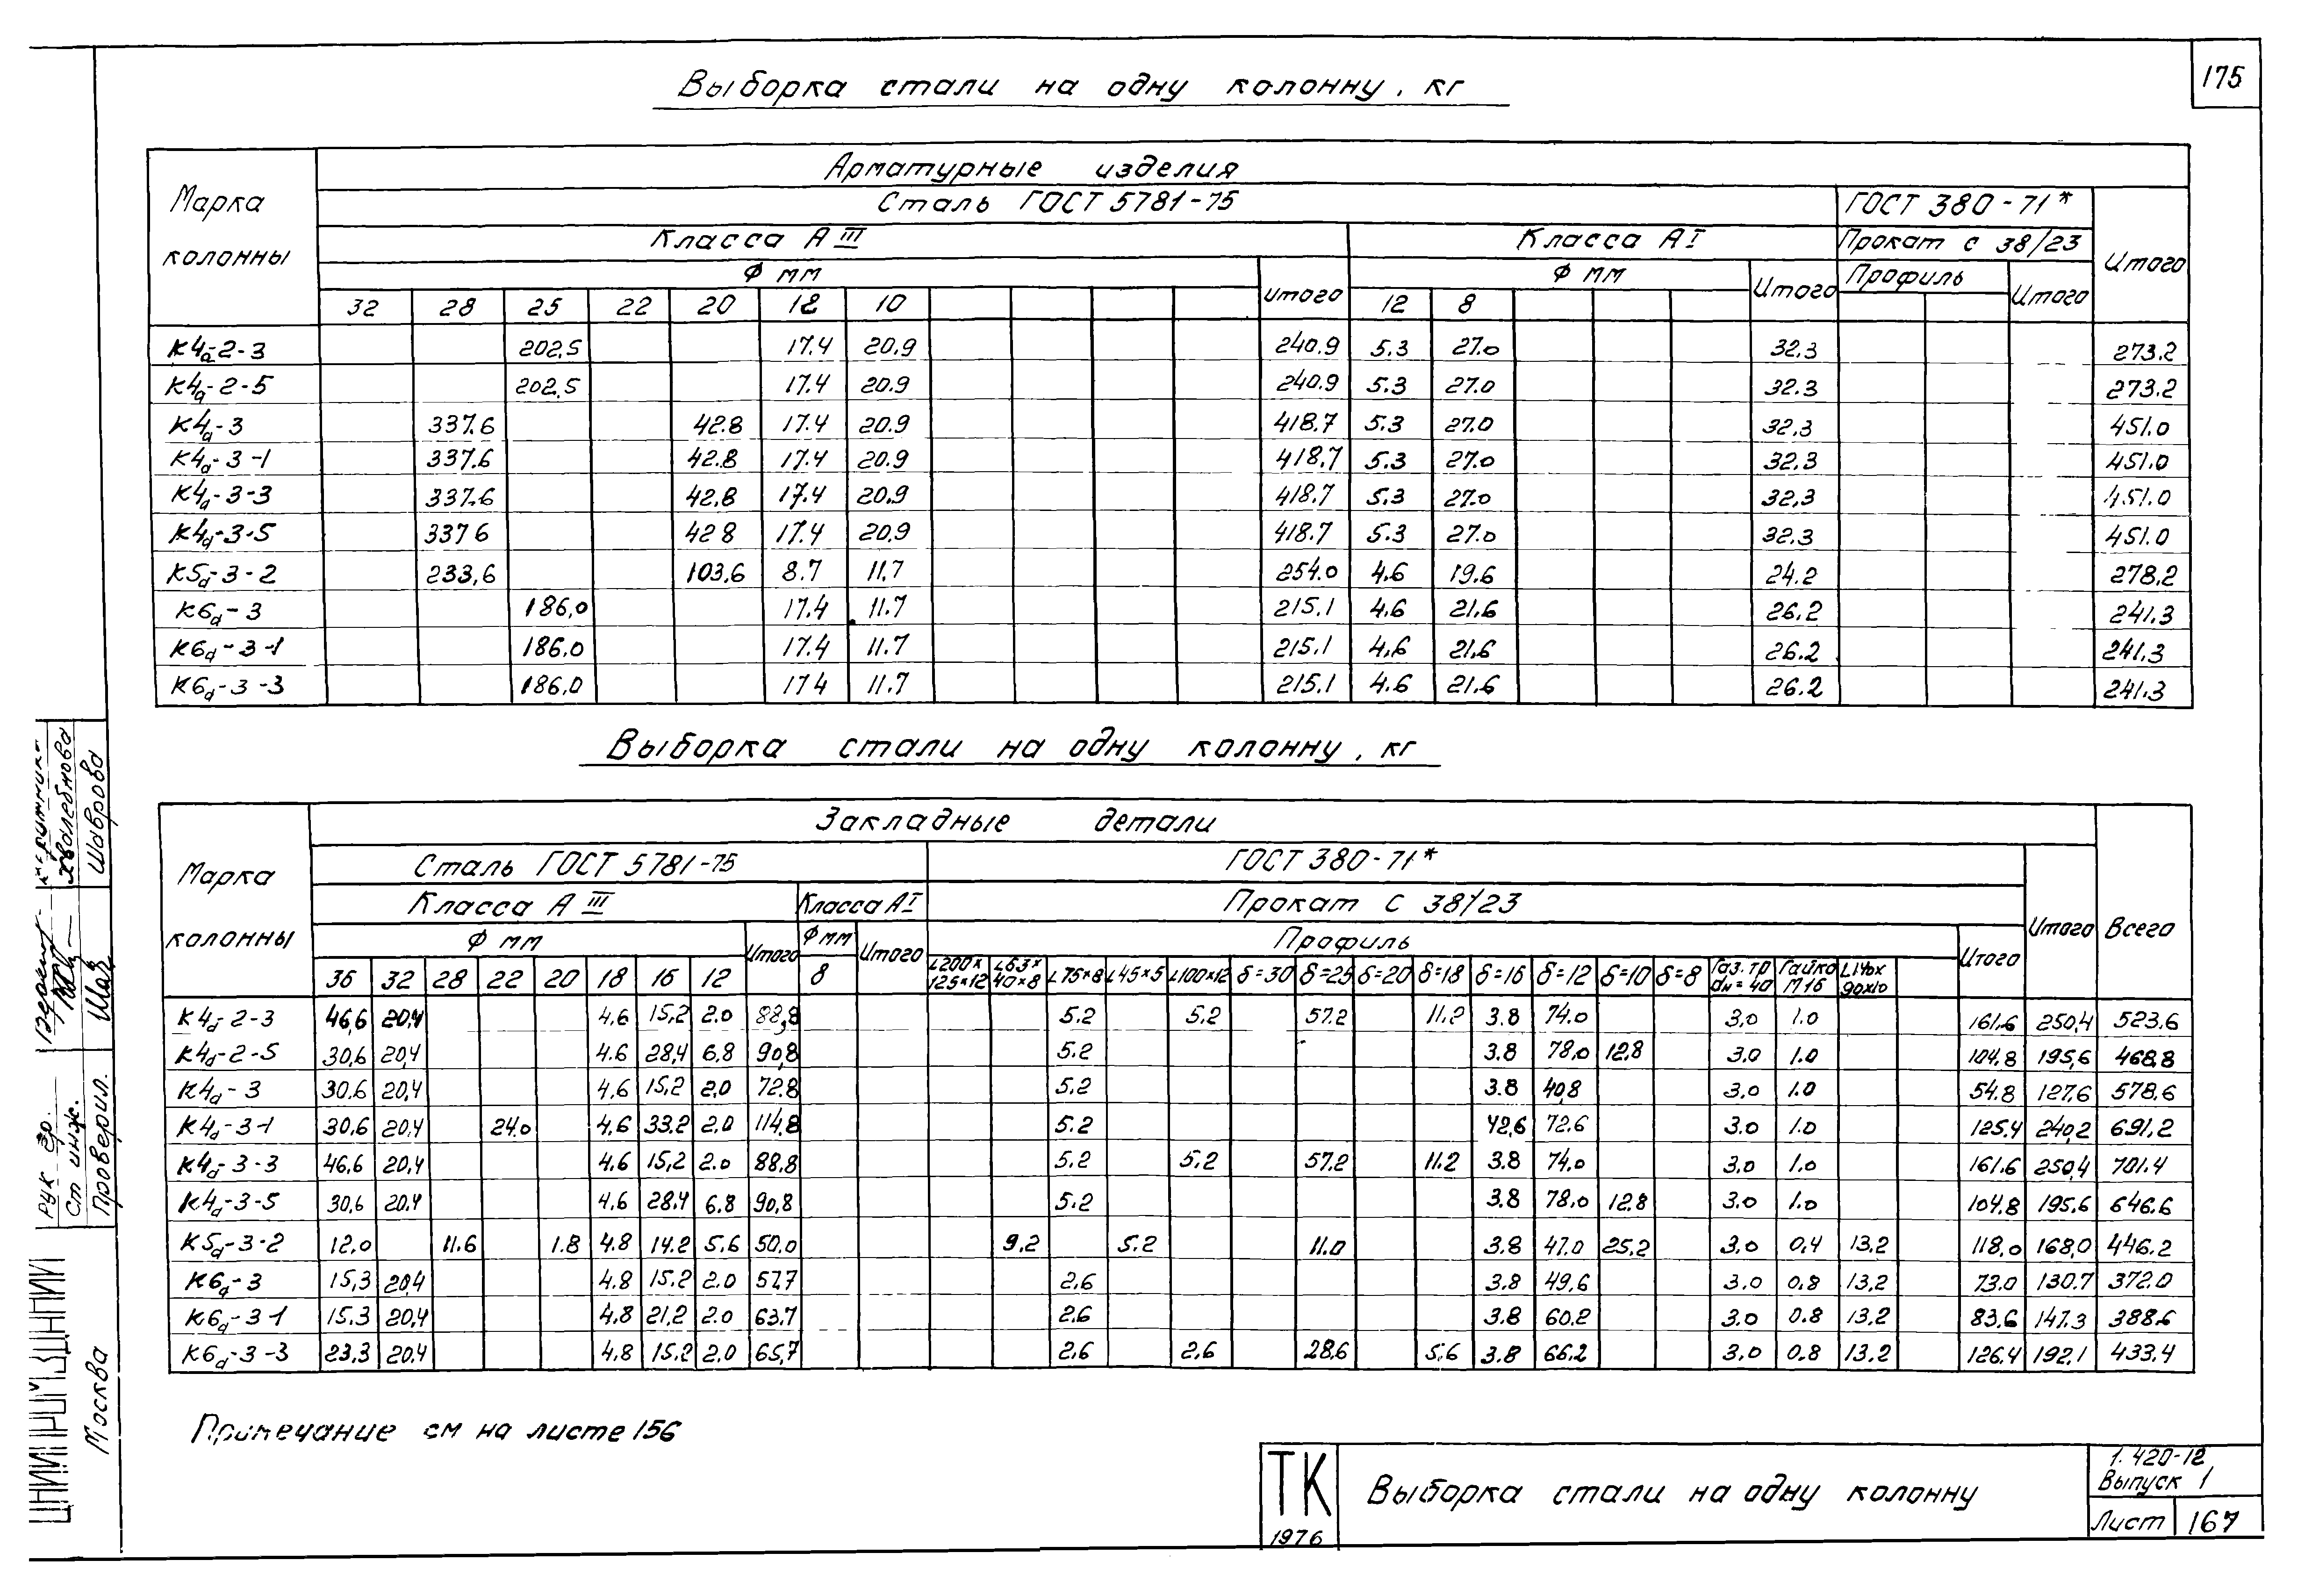 175
Выборка стали на одну колонну, кг
Марка колонны
Арматурные изделия
Сталь ГОСТ 5781-75 ГОСТ 380-71* Итого
Класса А III Класса А I Прокат С 38/23
Ф мм Итого Ф мм Итого Профиль Итого
32 28 25 22 20 18 10 12 8
К4д-2-3 202,5 17.4 20.9 240.9 5.3 27.0 32.3 273.2
К4д-2-5 202,5 17.4 20.9 240.9 5.3 27.0 32.3 273.2
К4д-3 337.6 42.8 17.4 20.9 418.7 5.3 27.0 32.3 451.0
К4д-3-1 337.6 42.8 17.4 20.9 418.7 5.3 27.0 32.3 451.0
К4д-3-3 337.6 42.8 17.4 20.9 418.7 5.3 27.0 32,3 451.0
К4д-3-5 337 6 42 8 17.4 20.9 418.7 5.3 27.0 32.3 451.0
К5д-3-2 233,6 103.6 8.7 11.7 254.0 4.6 19.6 24.2 278.2
К6д-3 186,0 17.4 11.7 215.1 4.6 21.6 26.2 241.3
К6д-3-1 186.0 17.4 11.7 215.1 4.6 21.6 26.2 241.3
К6д-3-3 186.0 17 4 11.7 215.1 4.6 21.6 26.2 241.3
Выборка стали на одну колонну, кг
Марка колонны
Закладные детали Всего
Сталь ГОСТ 5781-75 ГОСТ 380-71* Итого
Класса А III Класса А I Прокат С 38/23
Ф мм Итого Ф мм Итого Профиль Итого
36 32 28 22 20 18 16 12 8 L200×125×12 L63×40×8 L75×8 L45×5 L100×12 δ=30 δ=25 δ=20 δ=18 δ=16 δ=12 δ=10 δ=8 Газ. тр dн=40 Гайка М16 L140×90×10
К4д-2-3 46,6 20,4 4,6 15,2 2.0 88,8 5.2 5.2 57.2 11.2 3.8 74.0 3,0 1.0 161.6 250,4 523.6
К4д-2-5 30,6 20,4 4.6 28,4 6,8 90,8 5.2 3.8 78,0 12,8 3,0 1.0 104.8 195,6 468,8
К4д-3 30.6 20,4 4,6 15,2 2,0 72.8 5.2 3.8 40,8 3,0 1.0 54.8 127,6 578,6
К4д-3-1 30,6 20,4 24.0 4,6 33.2 2,0 114,8 5.2 42,6 72.6 3.0 1.0 125.4 240,2 691.2
К4д-3-3 46,6 20,4 4,6 15,2 2.0 88.8 5.2 5.2 57,2 11.2 3.8 74,0 3,0 1.0 161.6 250,4 701.4
К4д-3-5 30,6 20.4 4,6 28.4 6.8 90,8 5.2 3.8 78,0 12,8 3.0 1.0 104.8 195.6 646.6
К5д-3-2 12.0 11.6 1.8 4.8 14.2 5,6 50,0 9,2 5.2 11.0 3.8 47.0 25,2 3,0 0,4 13,2 118,0 168,0 446.2
К6д-3 15,3 20,4 4.8 15.2 2.0 57.7 2,6 3.8 49,6 3.0 0,8 13,2 73.0 130.7 372.0
К6д-3-1 15.3 20,4 4.8 21,2 2.0 63.7 2,6 3.8 60.2 3.0 0.8 13,2 83,6 147.3 388.6
К6д-3-3 23,3 20.4 4.8 15.2 2,0 65,7 2,6 2,6 28,6 5,6 3.8 66.2 3,0 0,8 13.2 126.4 192.1 433.4
Примечание см на листе 156
ТК
1976
Выборка стали на одну колонну
1.420-12
Выпуск 1
Лист 167
Рук гр.
Ст инж. Хвалебнова
Проверил. Шаврова
Москва